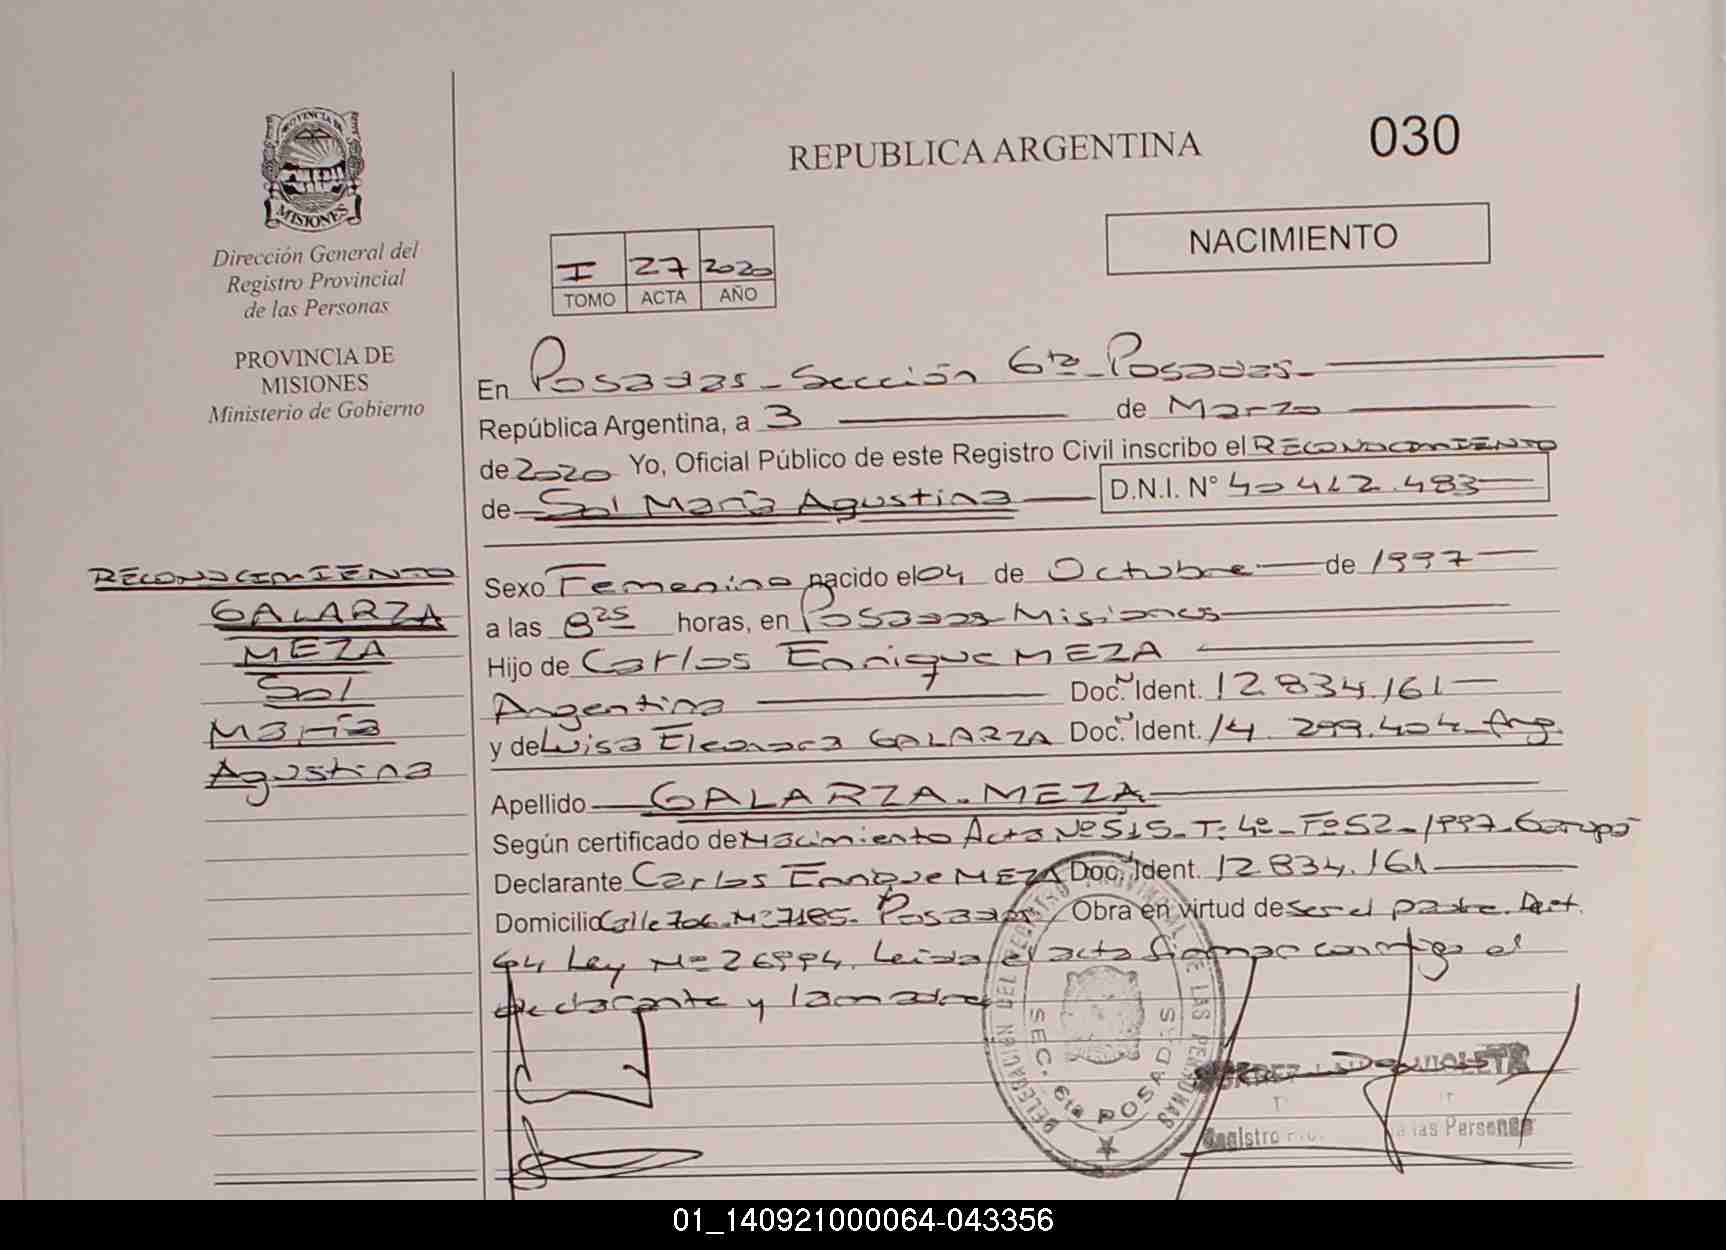 PROVINCIA DE
MISIONES
Dirección General del
Registro Provincial
de las Personas
PROVINCIA DE
MISIONES
Ministerio de Gobierno
REPUBLICA ARGENTINA
030
NACIMIENTO
I 27 2020
TOMO ACTA AÑO
En Posadas - Sección 6ta - Posadas -
República Argentina, a 3 de Marzo
de 2020 Yo, Oficial Público de este Registro Civil inscribo el RECONOCIMIENTO
de Sol María Agustina D.N.I. N° 40 412.483
Sexo Femenino nacido el 04 de Octubre de 1997
a las 8 25 horas, en Posadas Misiones
Hijo de Carlos Enrique MEZA
Argentina Doc. Ident. 12.834.161
y de Luisa Eleonora GALARZA Doc. Ident. 14.299.404 - Arg.
Apellido GALARZA - MEZA
Según certificado de Nacimiento Acta Nº 515 - T: 4º - Fº 52 - 1997 - Garupá
Declarante Carlos Enrique MEZA Doc. Ident. 12.834.161
Domicilio Calle 706 - Nº 7185 - Posadas Obra en virtud de ser el padre. Art.
64 Ley Nº 26994. Leida el acta firman conmigo el
declarante y la madre
RECONOCIMIENTO
GALARZA
MEZA
Sol
María
Agustina
DELEGACION DEL REGISTRO PROVINCIAL DE LAS PERSONAS
SEC. 6ta POSADAS
Registro las Personas
01_140921000064-043356